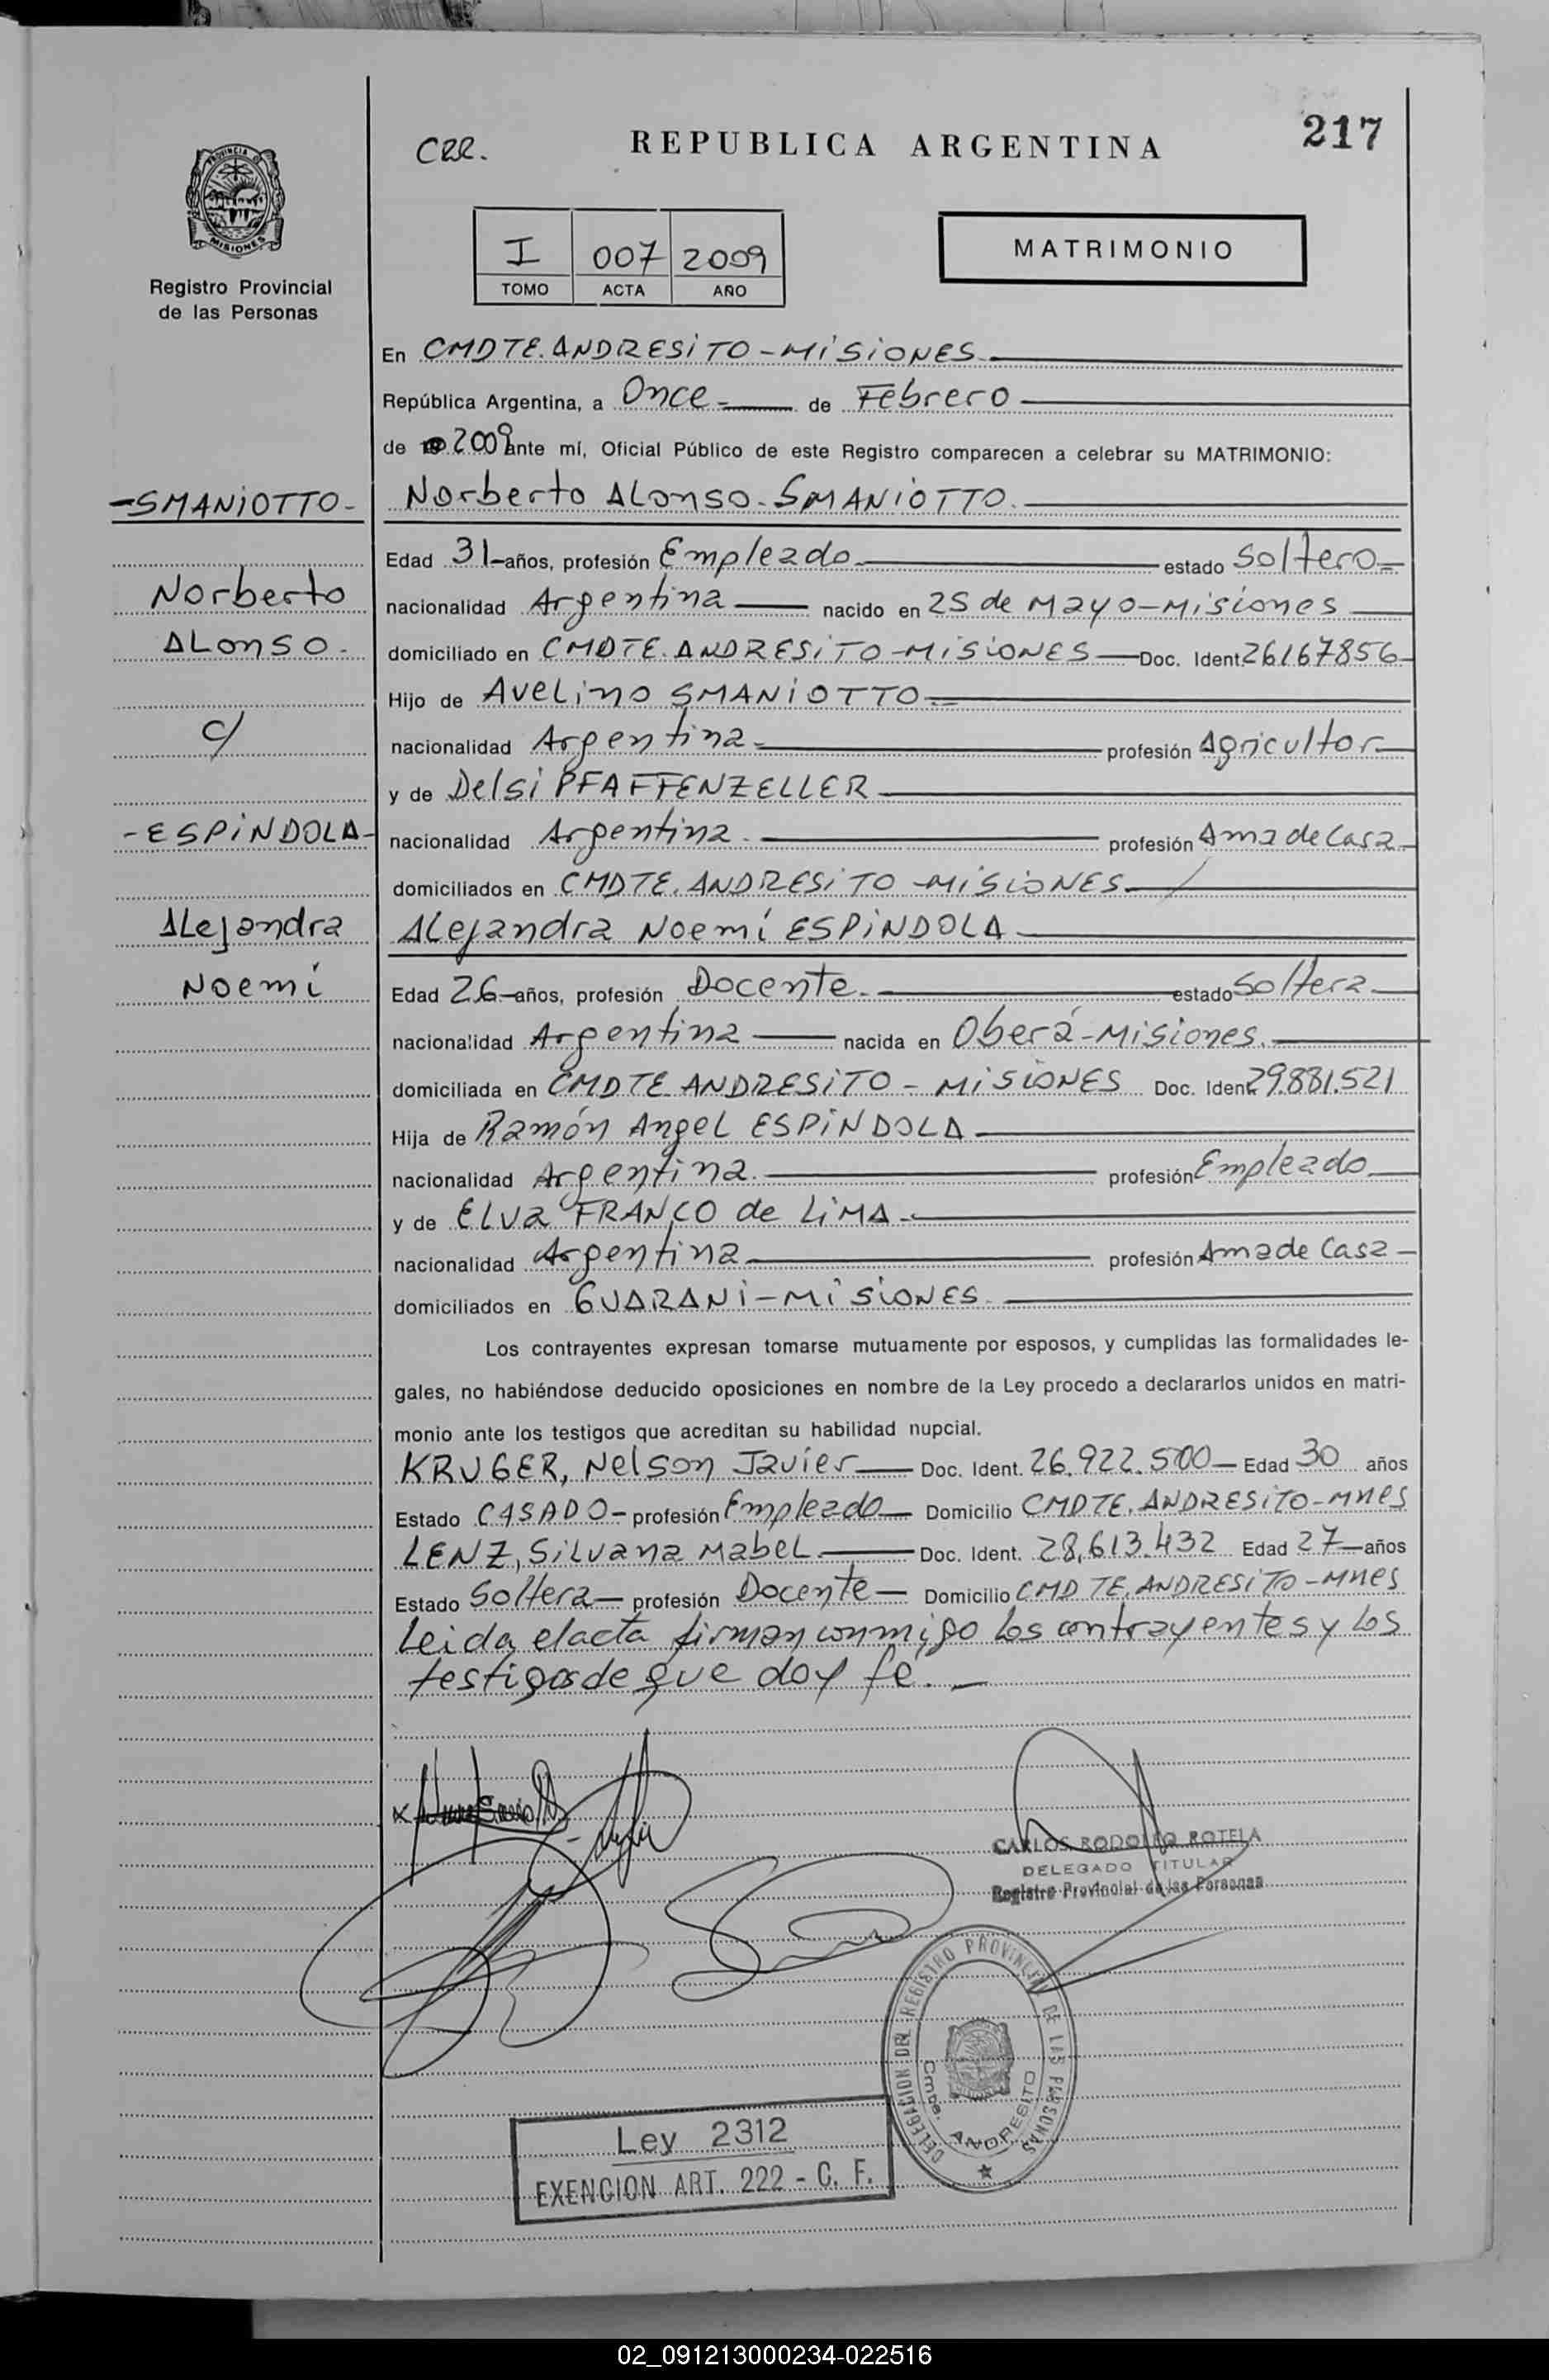 217
CRR.
REPUBLICA ARGENTINA
PROVINCIA DE
MISIONES
Registro Provincial
de las Personas
I 007 2009
TOMO ACTA AÑO
MATRIMONIO
En CMDTE. ANDRESiTO - MiSiONES
República Argentina, a Once de Febrero
de 2009 ante mí, Oficial Público de este Registro comparecen a celebrar su MATRIMONIO:
-SMANiOTTO-
Norberto
ALonso.
c/
-ESPiNDOLA-
ALejandra
Noemí
Norberto ALonso. SMANiOTTO.
Edad 31 años, profesión Empleado estado Soltero
nacionalidad Argentina nacido en 25 de Mayo - Misiones
domiciliado en CMDTE. ANDRESiTO - MiSiONES Doc. Ident 26167856
Hijo de AveLino SMANiOTTO
nacionalidad Argentina profesión Agricultor
y de Delsi PFAFFENZELLER
nacionalidad Argentina profesión Ama de Casa
domiciliados en CMDTE. ANDRESiTO - MiSiONES
ALejandra Noemí ESPiNDOLA
Edad 26 años, profesión Docente. estado Soltera
nacionalidad Argentina nacida en Oberá - Misiones.
domiciliada en CMDTE ANDRESiTO - MiSiONES Doc. Ident. 29.881.521
Hija de Ramón AngeL ESPiNDOLA
nacionalidad Argentina. profesión Empleado
y de ELva FRANCO de LiMA.
nacionalidad Argentina profesión Ama de Casa
domiciliados en GUARANi - MiSiONES.
Los contrayentes expresan tomarse mutuamente por esposos, y cumplidas las formalidades le-
gales, no habiéndose deducido oposiciones en nombre de la Ley procedo a declararlos unidos en matri-
monio ante los testigos que acreditan su habilidad nupcial.
KRUGER, Nelson Javier Doc. Ident. 26.922.500 Edad 30 años
Estado CASADO profesión Empleado Domicilio CMDTE. ANDRESiTO - Mnes
LENZ, SiLvana MabeL Doc. Ident. 28.613.432 Edad 27 años
Estado Soltera profesión Docente Domicilio CMDTE. ANDRESiTO - Mnes
Leida el acta firman conmigo los contrayentes y los
testigos de que doy fe.
CARLOS RODOLFO ROTELA
DELEGADO TITULAR
Registro Provincial de las Personas
DELEGACION DEL REGISTRO PROVINCIAL DE LAS PERSONAS
Cmte. ANDRESITO
Ley 2312
EXENCION ART. 222 - C. F.
02_091213000234-022516